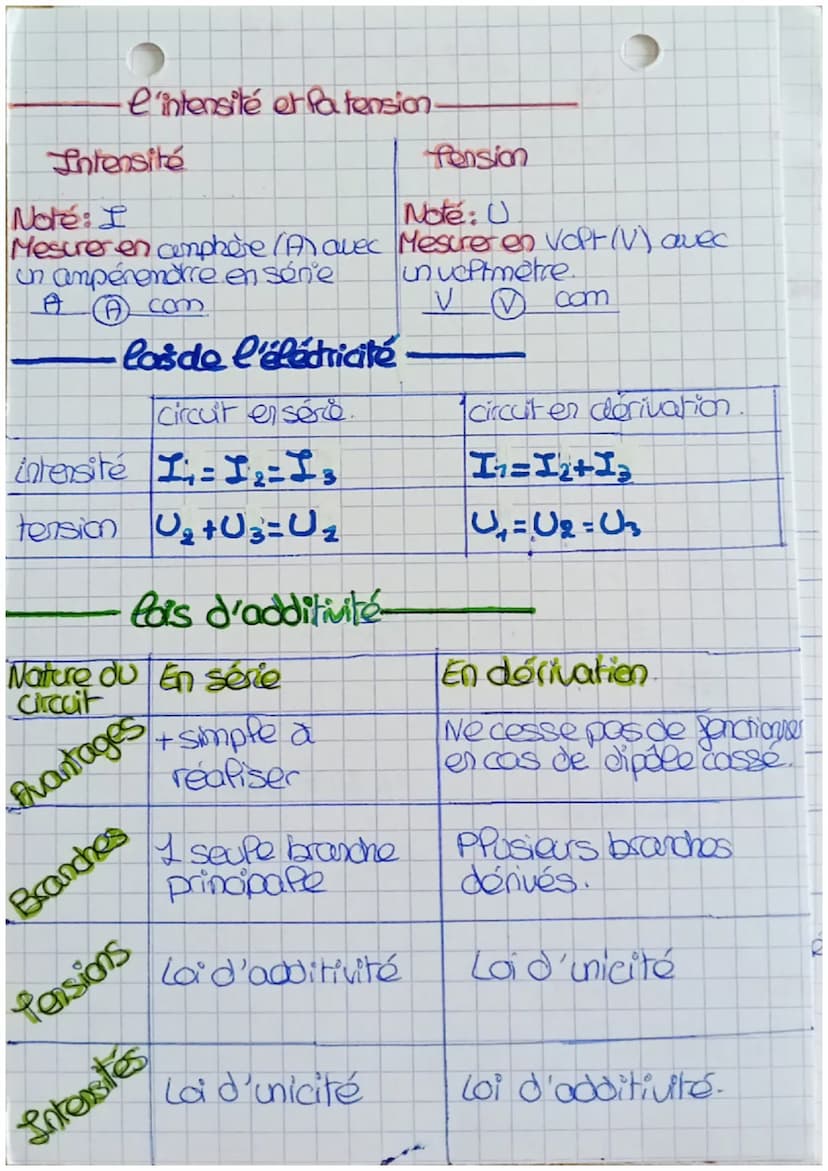 l'intensité et la tension
Intensité
Noté: I
Mesurer en amphère (A) avec
un ampéremdtre en série
A (A) com
Tension
Noté: U
Mesurer en volt (V) avec
un voltmètre.
V (V) com
lois de l'éléctricité
circuit en série.
circuit en dérivation.
intensité I₁ = I₂ = I₃
I₁ = I₂ + I₃
tension U₂ + U₃ = U₂
U₁ = U₂ = U₃
lois d'additivité
Nature du circuit
En série
En dérivation.
Avantages
+ simple à
réaliser
Ne cesse pas de fonctionner
en cas de dipôle cassé.
Branches
1 seule branche
principale
Plusieurs branches
dérivés.
Tensions
Loi d'additivité
Loi d'unicité
Intensités
Loi d'unicité
Loi d'additivité.